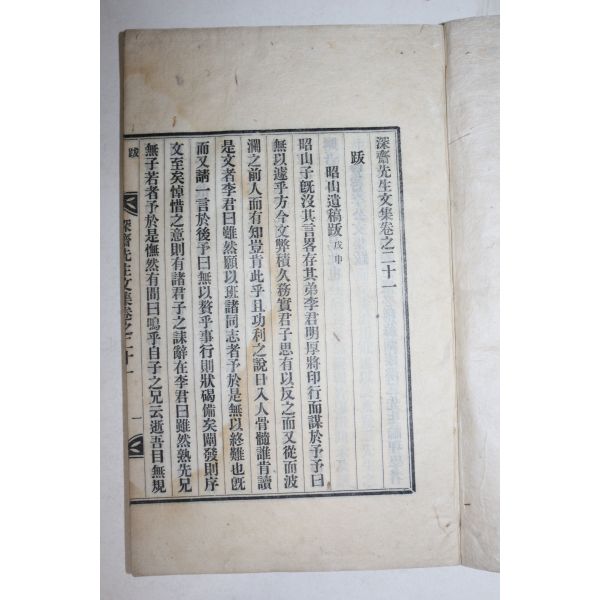 深齋先生文集卷之二十一
跋
昭山遺稿跋 戊申
昭山子旣沒其言畧存其弟李君明厚將印行而謀於予予曰
無以遽乎方今文弊積久務實君子思有以反之而又從而波
瀾之前人而有知豈肯此乎且功利之說日入人骨髓誰肯讀
是文者李君曰雖然願以班諸同志者予於是無以終難也旣
而又請一言於後予曰無以贅乎事行則狀碣備矣闡發則序
文至矣悼惜之意則有諸君子之誄辭在李君曰雖然熟先兄
無子若者予於是憮然有間曰嗚乎自子之兄云逝吾目無規
跋
深齋先生文集卷之二十一
一